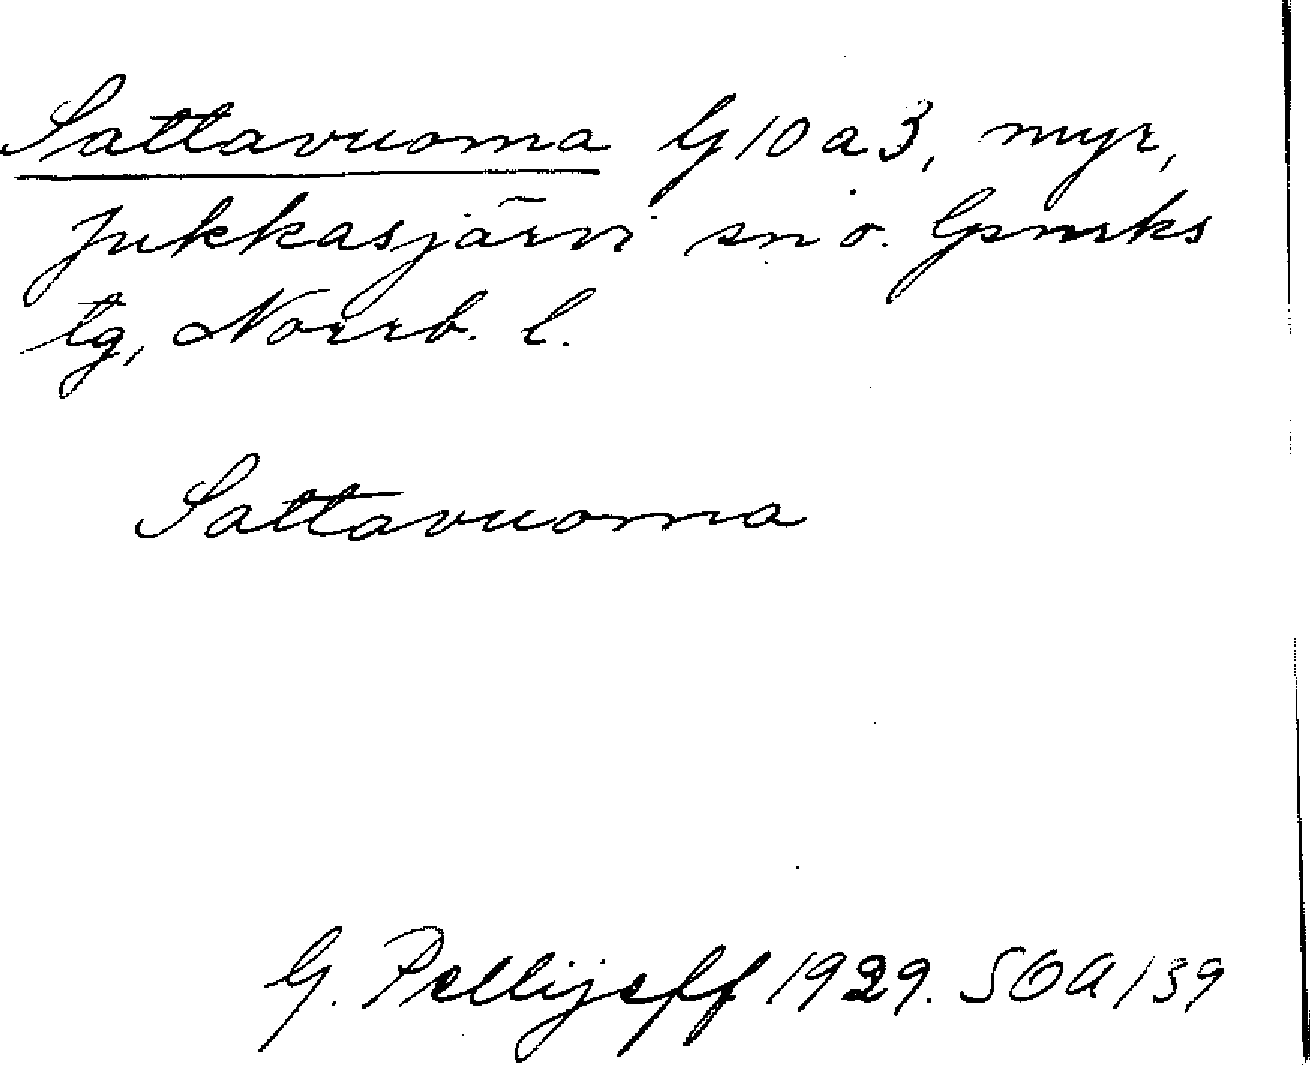 Sattavuoma G 10 a 3, myr,
Jukkasjärvi sn o. Gmrks
tg, Norrb. l.
Sattavuoma
G. Pellijeff 1929. SOA 139